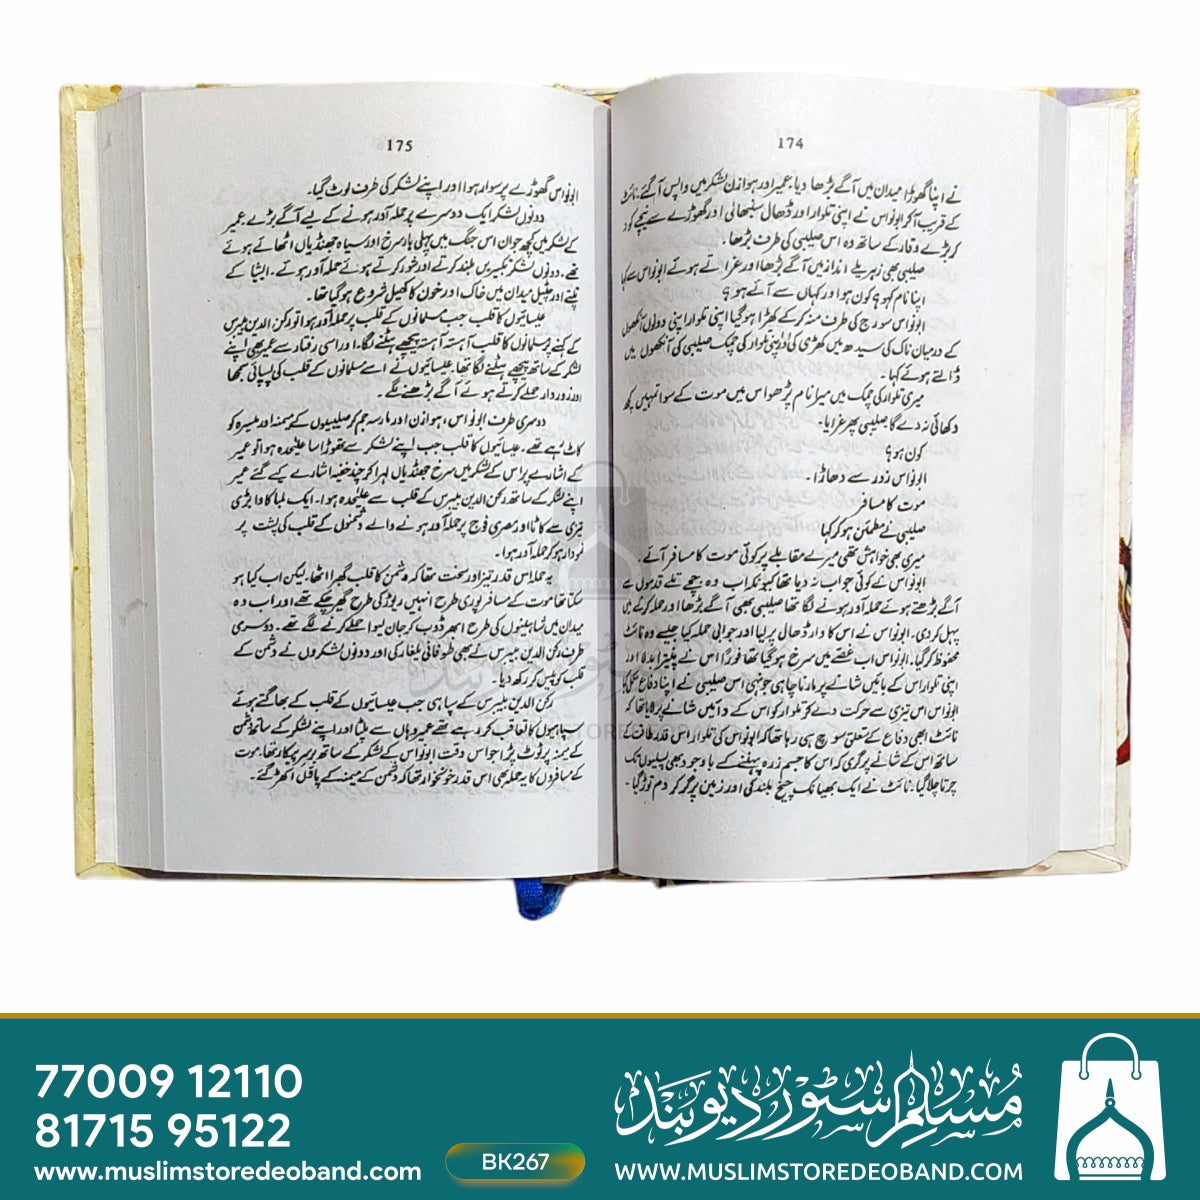 174
نے اپنا گھوڑا میدان میں آگے بڑھا دیا۔ عمیر اور ہوازن لشکر میں واپس آ گئے۔ نائٹ
کے قریب آکر ابونواس نے اپنی تلوار اور ڈھال سنبھالی اور گھوڑے سے نیچے کود
کر بڑے وقار کے ساتھ وہ اس صلیبی کی طرف بڑھا۔
صلیبی بھی زہریلے انداز میں آگے بڑھا اور غراتے ہوئے ابونواس سے کہا
اپنا نام کہو؟ کون ہو اور کہاں سے آئے ہو؟
ابونواس سورج کی طرف منہ کر کے کھڑا ہو گیا اپنی تلوار اپنی دونوں آنکھوں
کے درمیان ناک کی سیدھ میں کھڑی کی اور اپنی تلوار کی چمک صلیبی کی آنکھوں میں
ڈالتے ہوئے کہا۔
میری تلوار کی چمک میں میرا نام پڑھو اس میں موت کے سوا تمہیں کچھ
دکھائی نہ دے گا صلیبی پھر غرایا۔
کون ہو؟
ابونواس زور سے دھاڑا۔
موت کا مسافر
صلیبی نے مطمئن ہو کر کہا
میری بھی خواہش تھی میرے مقابلے پر کوئی موت کا مسافر آئے۔
ابونواس نے کوئی جواب نہ دیا تھا کیونکہ اب وہ نپے تلے قدموں سے
آگے بڑھتے ہوئے حملہ آور ہونے لگا تھا صلیبی بھی آگے بڑھا اور حملہ کرنے میں
پہل کر دی۔ ابونواس نے اس کا وار ڈھال پر لیا اور جوابی حملہ کیا جیسے وہ نائٹ
محفوظ کر گیا۔ ابونواس اب غصے میں سرخ ہو گیا تھا فوراً اس نے پینترا بدلا اور
اپنی تلوار اس کے بائیں شانے پر مارنا چاہی جونہی اس صلیبی نے اپنا دفاع
ابونواس اس تیزی سے حرکت دے کر تلوار کو اس کے دائیں شانے پر لایا تھا کہ
نائٹ ابھی دفاع کے متعلق سوچ ہی رہا تھا کہ ابونواس کی تلوار اس قدر طاقت کے
ساتھ اس کے شانے پر گری کہ اس کا جسم زرہ پہننے کے باوجود بھی پسلیوں تک
چرتا چلا گیا۔ نائٹ نے ایک بھیانک چیخ بلند کی اور زمین پر گر کر دم توڑ گیا۔
175
ابونواس گھوڑے پر سوار ہوا اور اپنے لشکر کی طرف لوٹ گیا۔
دونوں لشکر ایک دوسرے پر حملہ آور ہونے کے لیے آگے بڑے عمیر
کے لشکر میں کچھ جوان اس جنگ میں پہلی بار سرخ اور سیاہ جھنڈیاں اٹھائے ہوئے
تھے۔ دونوں لشکر تکبیریں بلند کرتے اور شور کرتے ہوئے حملہ آور ہوئے۔ ایشیا کے
تپتے اور چٹیل میدان میں خاک اور خون کا کھیل شروع ہو گیا تھا۔
عیسائیوں کا قلب جب مسلمانوں کے قلب پر حملہ آور ہوا تو رکن الدین بیبرس
کے کہنے پر مسلمانوں کا قلب آہستہ آہستہ پیچھے ہٹنے لگا۔ اور اسی رفتار سے عمیر بھی اپنے
لشکر کے ساتھ پیچھے ہٹنے لگا تھا۔ عیسائیوں نے اسے مسلمانوں کے قلب کی پسپائی سمجھا
اور زور دار حملے کرتے ہوئے آگے بڑھنے لگے۔
دوسری طرف ابونواس، ہوازن اور مارسہ جم کر صلیبیوں کے میمنہ اور میسرہ کو
کاٹ رہے تھے۔ عیسائیوں کا قلب جب اپنے لشکر سے تھوڑا سا علیحدہ ہوا تو عمیر
کے اشارے پر اس کے لشکر میں سرخ جھنڈیاں لہرا کر چند خفیہ اشارے کیے گئے عمیر
اپنے لشکر کے ساتھ رکن الدین بیبرس کے قلب سے علیحدہ ہوا۔ ایک لمبا کاوا بڑی
تیزی سے کاٹا اور مصری فوج پر حملہ آور ہونے والے دشمنوں کے قلب کی پشت پر
نمودار ہو کر حملہ آور ہوا۔
یہ حملہ اس قدر تیز اور سخت تھا کہ دشمن کا قلب گھبرا اٹھا۔ لیکن اب کیا ہو
سکتا تھا موت کے مسافر پوری طرح انہیں ریوڑ کی طرح گھیر چکے تھے اور اب وہ
میدان میں شاہینوں کی طرح ابھر ڈوب کر جان لیوا حملے کرنے لگے تھے۔ دوسری
طرف رکن الدین بیبرس نے بھی طوفانی یلغار کی اور دونوں لشکروں نے دشمن کے
قلب کو پیس کر رکھ دیا۔
رکن الدین بیبرس کے سپاہی جب عیسائیوں کے قلب کے بھاگتے ہوئے
سپاہیوں کا تعاقب کر رہے تھے عمیر وہاں سے پلٹا اور اپنے لشکر کے ساتھ دشمن
کے میمنہ پر ٹوٹ پڑا جو اس وقت ابونواس کے لشکر کے ساتھ برسرپیکار تھا۔ موت
کے مسافروں کا یہ حملہ بھی اس قدر خونخوار تھا کہ دشمن کے میمنہ کے پاؤں اکھڑ گئے۔
77009 12110
81715 95122
www.muslimstoredeoband.com
BK267
مسلم سٹور دیوبند
WWW.MUSLIMSTOREDEOBAND.COM